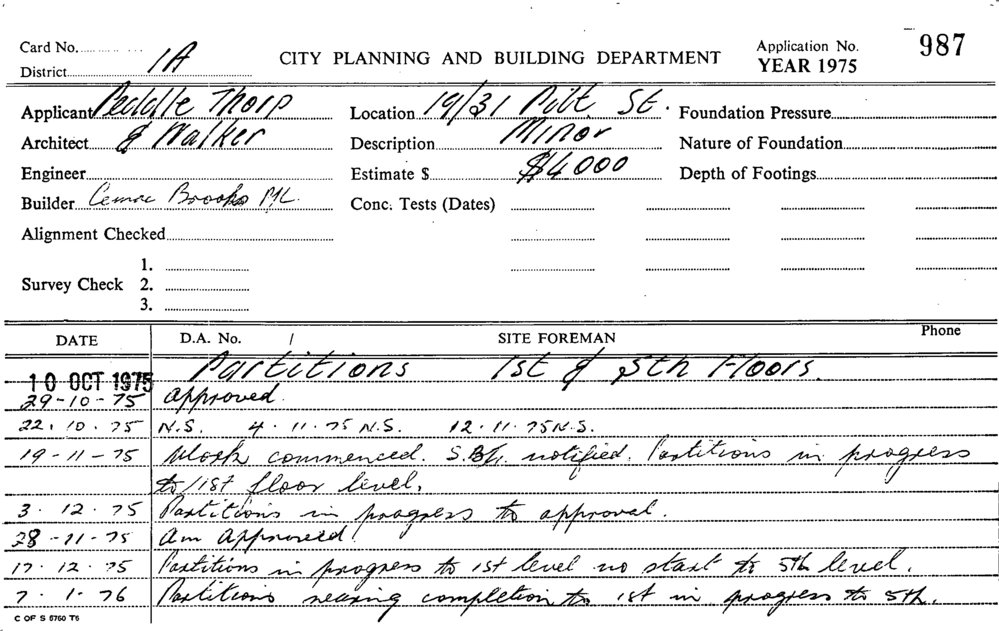 Card No.
District 1A
CITY PLANNING AND BUILDING DEPARTMENT
Application No. 987
YEAR 1975
Applicant Peddle Thorp
Architect & Walker
Engineer
Builder Cemac Brooks P/L.
Location 19/31 Pitt. St.
Description Minor
Estimate $ $14000
Conc. Tests (Dates)
Foundation Pressure
Nature of Foundation
Depth of Footings
Alignment Checked
Survey Check
1.
2.
3.
DATE D.A. No. / SITE FOREMAN Phone
10 OCT 1975 Partitions 1st & 5th Floors.
29-10-75 approved.
22.10.75 N.S. 4.11.75 N.S. 12.11.75 N.S.
19-11-75 Work commenced. notified. Partitions in progress
to 1st floor level.
3.12.75 Partitions in progress to approval.
28-11-75 am Approved
17.12.75 Partitions in progress to 1st level no start to 5th level.
7.1.76 Partitions nearing completion to 1st in progress to 5th.
C OF S 5750 T5